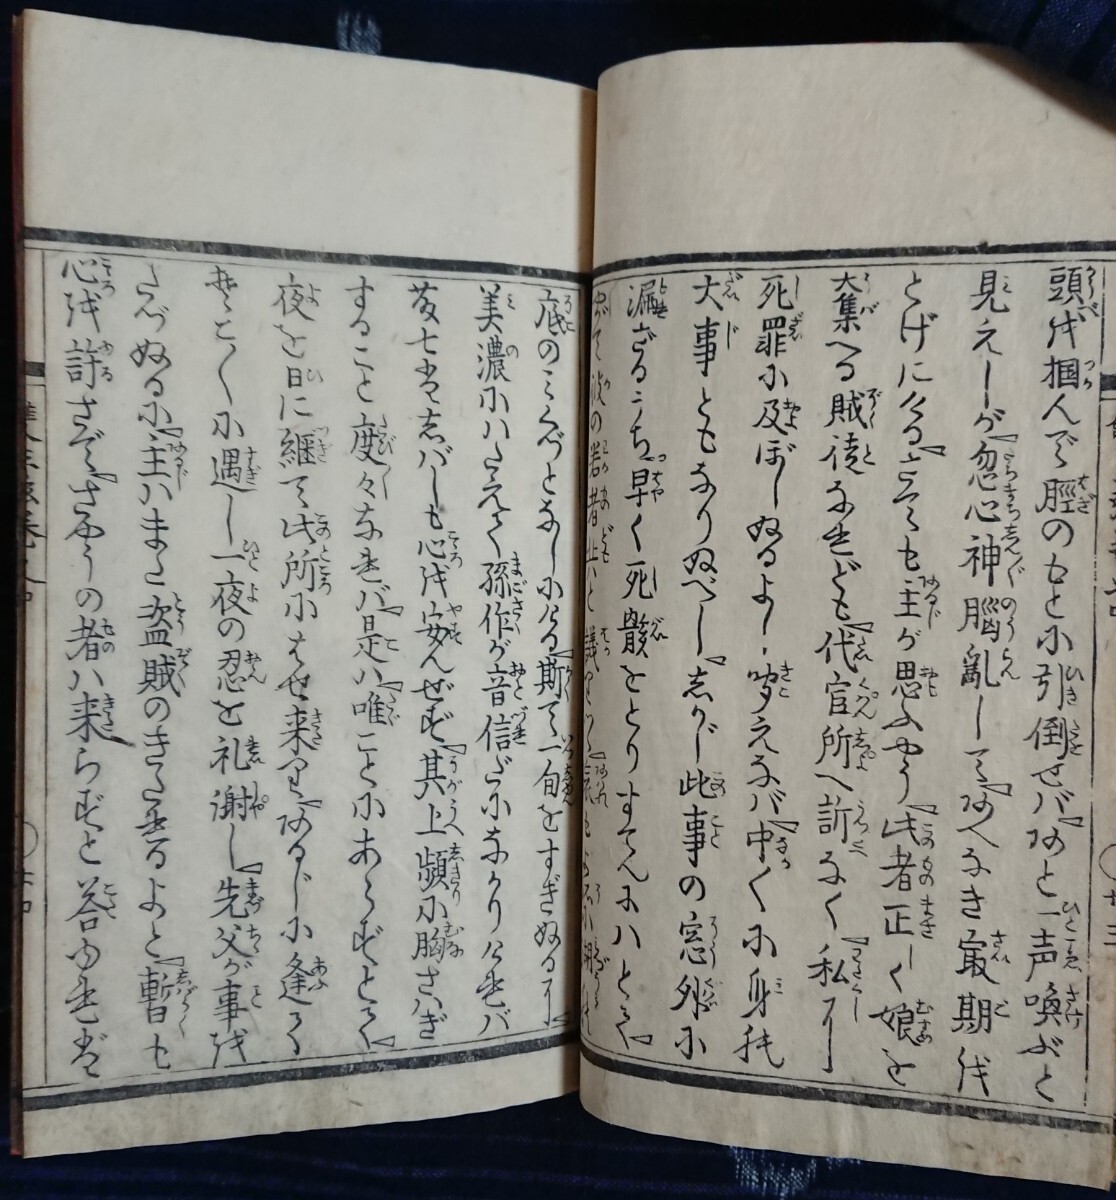 頭を掴んで脛のもとに引倒せバあと一声喚ぶと
見えしが忽心神脳乱してあへなき最期を
とげにけるさても主が思ふやう此者正しく娘を
集へる賊徒なれども代官所へ訴なく私に
死罪に及ぼしぬるよし聞えなバ中〱に身の
大事ともなりぬべししかじ此事の窓外に
漏ざるうち早く死骸をとりすてんにハとて
底のみくづとなしにける斯て一旬をすぎぬるに
美濃にハたえて孫作が音信だになかりけれバ
しバしも心を安んぜず其上頻に胸さハぎ
すること度々なれバ是ハ唯ことにあらずとて
夜を日に継て此所にはせ来りあるじに逢て
そこ〱に過し一夜の恩を礼謝し先父が事を
たづぬるに主ハまた盗賊のきたれるよと暫も
心を許さずさやうの者ハ来らずと答ゆれど